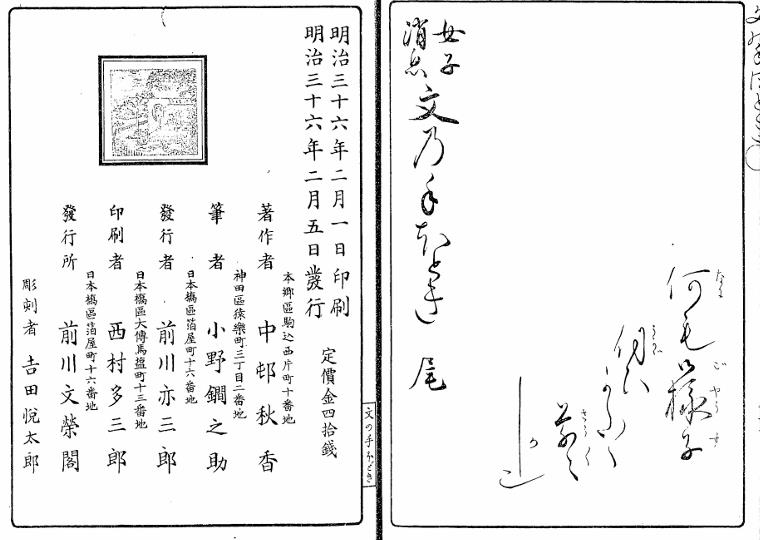 何も御様子
伺ひ
かしこ
女子
消息
文乃手ほどき 尾
文の手ほどき
明治三十六年二月一日印刷
明治三十六年二月五日發行
定價金四拾錢
本鄉區駒込西片町十番地
著作者 中邨秋香
神田區猿樂町三丁目二番地
筆者 小野鐗之助
日本橋區箔屋町十六番地
發行者 前川亦三郎
日本橋區大傳馬鹽町十三番地
印刷者 西村多三郎
日本橋區箔屋町十六番地
發行所 前川文榮閣
彫刻者 吉田悅太郎